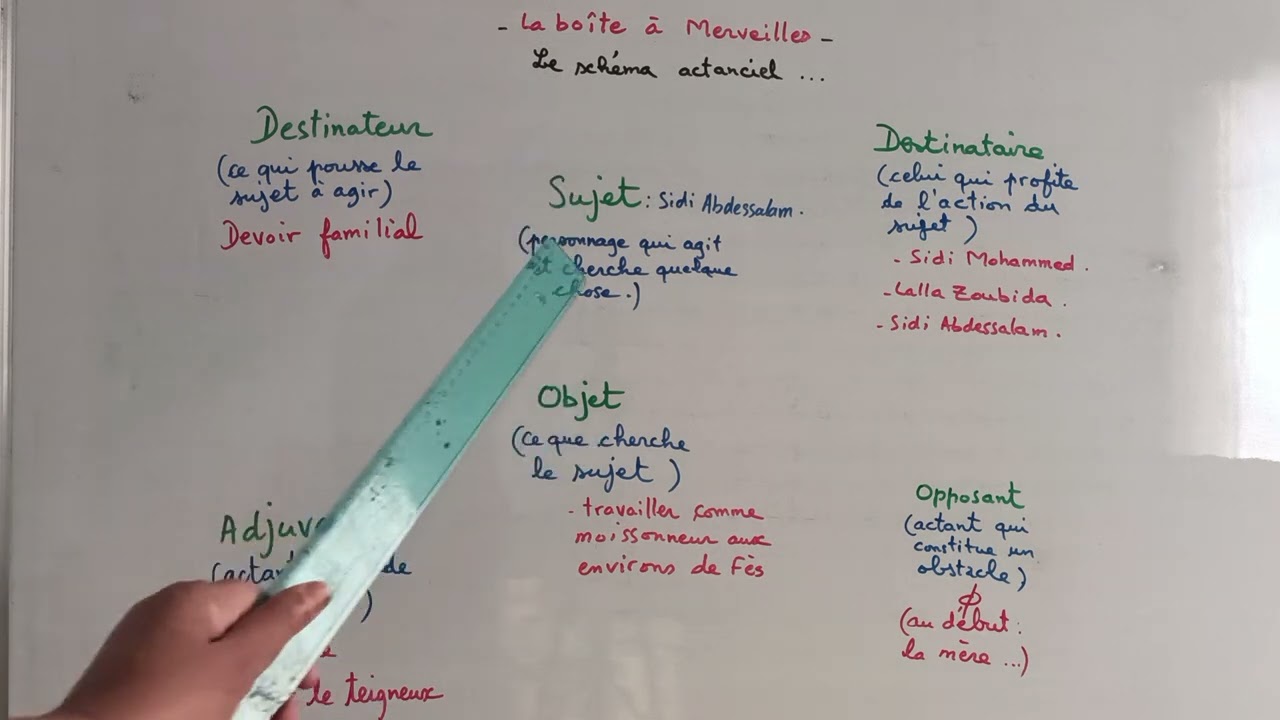 - La boîte à Merveilles -
Le schéma actanciel ...
Destinateur
(ce qui pousse le
sujet à agir)
Devoir familial
Sujet : Sidi Abdessalam.
(personnage qui agit
et cherche quelque
chose.)
Destinataire
(celui qui profite
de l'action du
sujet)
- Sidi Mohammed.
- Lalla Zoubida.
- Sidi Abdessalam.
Objet
(ce que cherche
le sujet)
- travailler comme
moissonneur aux
environs de Fès
Opposant
(actant qui
constitue un
obstacle)
ϕ
(au début :
la mère ...)
le teigneux